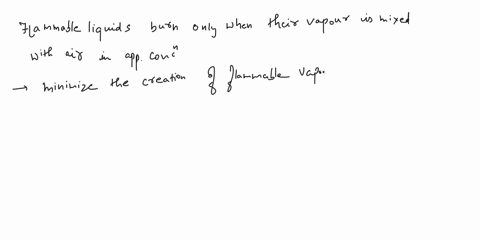 Flammable liquids burn only when their vapour is mixed
with air in app. conⁿ
→ minimize the creation of flammable vapo